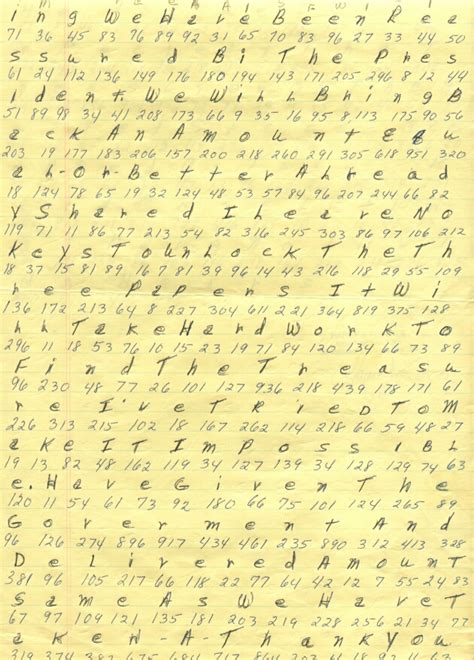 ing We Have Been Rea
71 36 45 83 76 89 92 31 65 70 83 96 27 33 44 50
ssured Bi The Pres
61 24 112 136 149 176 180 194 143 171 205 296 8 12 44
ident. We Will Bring B
51 89 98 34 41 208 173 66 9 35 16 95 8 113 175 90 56
ack An Amount Equ
203 19 177 183 206 157 200 218 260 291 305 618 951 320
al-or-Better Ahread
18 124 78 65 19 32 124 48 53 57 84 96 207 244 66 82
y Shared I Leave No
119 71 11 86 77 213 54 82 316 245 303 86 97 106 212
Keys To Unlock The Th
18 37 15 81 89 16 7 81 39 96 14 43 216 118 29 55 109
ree Papers It Wi
136 172 213 64 8 227 304 611 221 364 819 375 128
ll Take Hard Work To
296 11 18 53 76 10 15 23 19 71 84 120 134 66 73 89
Find The Treasu
96 230 48 77 26 101 127 936 218 439 178 171 61
re I've Tried To M
226 313 215 102 18 167 262 114 218 66 59 48 27
ake It Impossibl
19 13 82 48 162 119 34 127 139 34 128 129 74 63
e. Have Given The
120 11 54 61 73 92 180 66 75 101 124 265 89
Goverment And
96 126 274 896 917 434 461 235 890 312 413 328
Delivered Amount
381 96 105 217 66 118 22 77 64 42 12 7 55 24 83
Same As We Have T
67 97 109 121 135 181 203 219 228 256 21 34 77
aken-A-Thank You